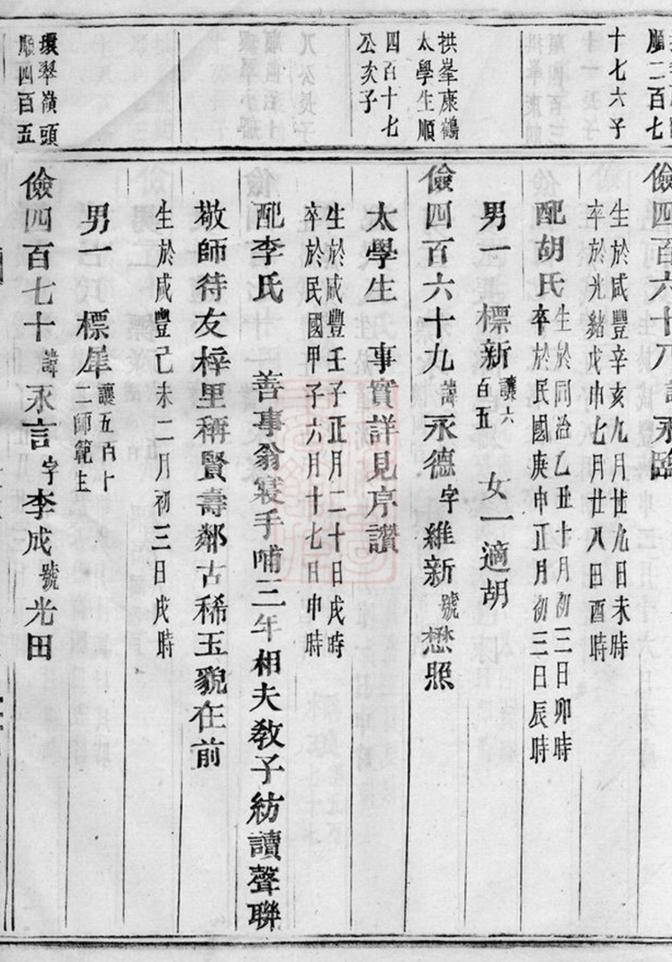 順二百七
十七六子
拱峯康鶴
太學生順
四百十七
公次子
環翠嶺頭
順四百五
儉四百六十八諱永臨
生於咸豐辛亥九月廿九日未時
卒於光緒戊申七月廿八日酉時
配胡氏
生於同治乙丑十月初三日卯時
卒於民國庚申正月初三日辰時
男一 標新讓六百五 女一適胡
儉四百六十九諱永德字維新號懋照
太學生 事實詳見序讚
生於咸豐壬子正月二十日戌時
卒於民國甲子六月十七日申時
配李氏 善事翁寢手哺三年相夫教子紡讀聲聯
敬師待友梓里稱賢壽鄰古稀玉貌在前
生於咸豐己未二月初三日戌時
男一 標犀讓五百十二師範生
儉四百七十諱永言字李成號光田